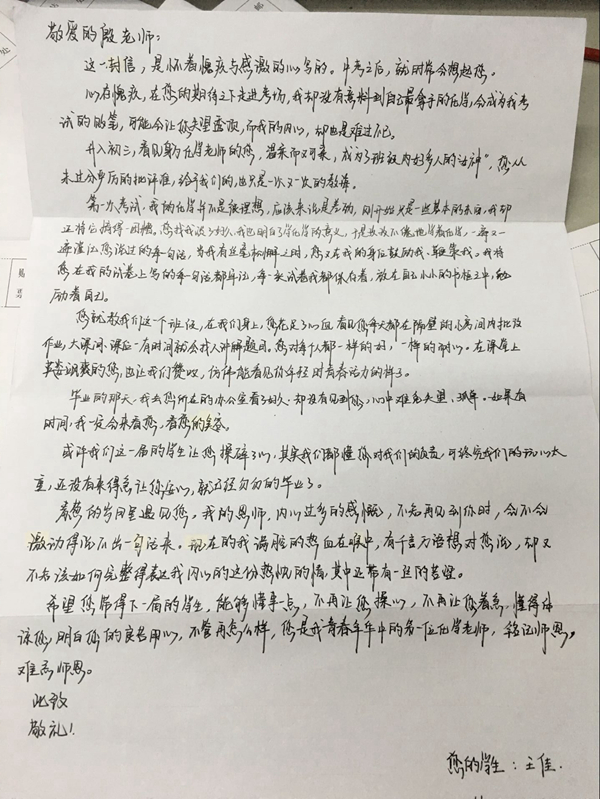 敬爱的殷老师:
这一封信,是怀着愧疚与感激的心写的。中考之后,就时常会想起您。
心存愧疚,在您的期待之下走进考场,我却没有意料到自己最拿手的化学,会成为我考
试的败笔,可能会让您失望透顶,而我的内心,却也是难过不已。
升入初三,看见身为化学老师的您,温柔而又可亲,成为了班级内好多人的“女神”,您从
未过分严厉的批评谁,给予我们的,也只是一次又一次的教诲。
第一次考试,我的化学并不是很理想,应该来说是差劲,刚开始只是一些基本的东西,我却
您说过的每一句话,当我有丝毫松懈之时,您又在我的身后鼓励我、鞭策我。我将
您在我的试卷上写的每一句话都牢记,每一张试卷我都保存着,放在自己小小的书柜之中,勉
励着自己。
您就教我们这一个班级,在我们身上,您花足了心血,看见您每天都在隔壁的小房间内批改
作业,大课间、课后一有时间就会找人讲解题目。您对每个人都一样的好,一样的耐心。在课堂上
英姿飒爽的您,也让我们赞叹,仿佛能看见您年轻时青春活力的样子。
毕业的那天,我去您所在的办公室看了好久,却没有见到您,心中难免失望、孤单。如果有
时间,我一定会来看您,看您的笑容。
或许我们这一届的学生让您操碎了心,其实我们都懂您对我们的负责,可终究我们的玩心太
重,还没有来得及让您安心,就已经匆匆的毕业了。
青葱的岁月里遇见您,我的恩师,内心过多的感慨,不知再见到你时,会不会
激动得说不出一句话来。现在的我满腔的热血在喉中,有千言万语想对您说,却又
不知该如何完整得表达我内心的这份热忱的情,其中还带有一丝的苦涩。
希望您带得下一届的学生,能够懂事一点,不再让您操心,不再让您着急,懂得体
谅您,明白您的良苦用心,不管再怎么样,您是我青春年华中的第一位化学老师,铭记师恩,
难忘师恩。
此致
敬礼!
您的学生:王佳.